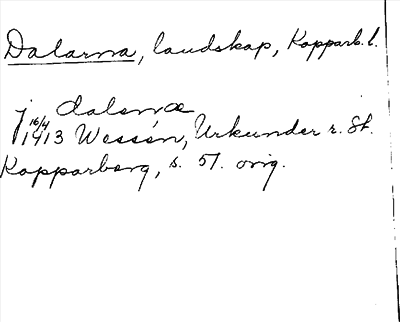 Dalarna, landskap, Kopparb. l.
j dalenæ
16/4 1413 Wessén, Urkunder r. St.
Kopparberg, s. 57. orig.